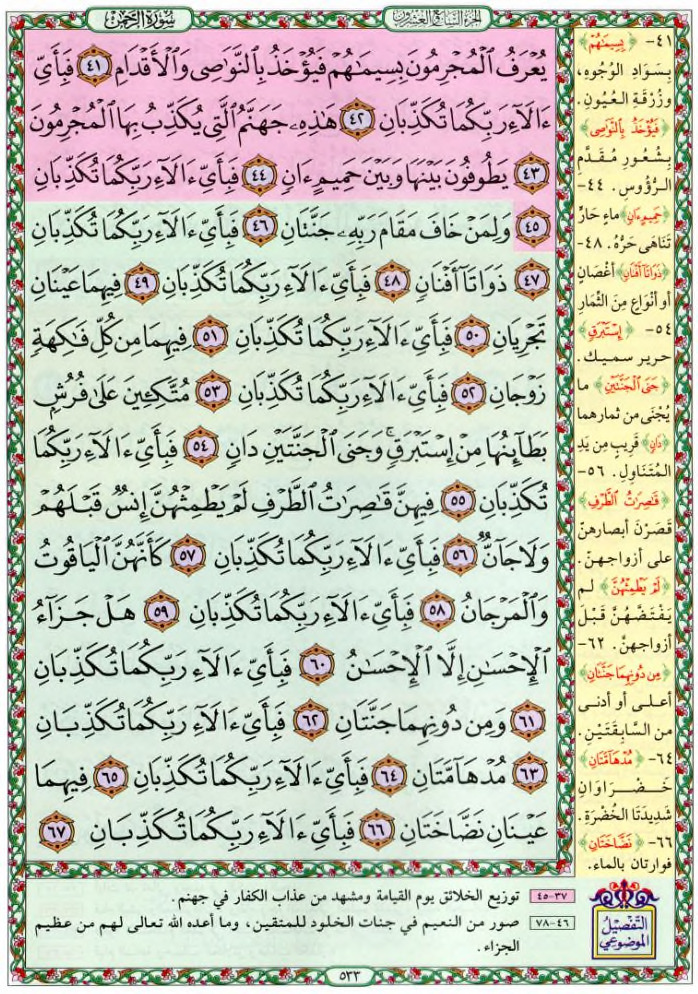 سُورَةُ الرَّحْمٰن
الجزء السابع والعشرون
يُعْرَفُ ٱلْمُجْرِمُونَ بِسِيمَٰهُمْ فَيُؤْخَذُ بِٱلنَّوَٰصِى وَٱلْأَقْدَامِ ٤١ فَبِأَىِّ
ءَالَآءِ رَبِّكُمَا تُكَذِّبَانِ ٤٢ هَٰذِهِۦ جَهَنَّمُ ٱلَّتِى يُكَذِّبُ بِهَا ٱلْمُجْرِمُونَ
٤٣ يَطُوفُونَ بَيْنَهَا وَبَيْنَ حَمِيمٍ ءَانٍ ٤٤ فَبِأَىِّ ءَالَآءِ رَبِّكُمَا تُكَذِّبَانِ
٤٥ وَلِمَنْ خَافَ مَقَامَ رَبِّهِۦ جَنَّتَانِ ٤٦ فَبِأَىِّ ءَالَآءِ رَبِّكُمَا تُكَذِّبَانِ
٤٧ ذَوَاتَآ أَفْنَانٍ ٤٨ فَبِأَىِّ ءَالَآءِ رَبِّكُمَا تُكَذِّبَانِ ٤٩ فِيهِمَا عَيْنَانِ
تَجْرِيَانِ ٥٠ فَبِأَىِّ ءَالَآءِ رَبِّكُمَا تُكَذِّبَانِ ٥١ فِيهِمَا مِن كُلِّ فَٰكِهَةٍ
زَوْجَانِ ٥٢ فَبِأَىِّ ءَالَآءِ رَبِّكُمَا تُكَذِّبَانِ ٥٣ مُتَّكِـِٔينَ عَلَىٰ فُرُشٍۭ
بَطَآئِنُهَا مِنْ إِسْتَبْرَقٍ ۚ وَجَنَى ٱلْجَنَّتَيْنِ دَانٍ ٥٤ فَبِأَىِّ ءَالَآءِ رَبِّكُمَا
تُكَذِّبَانِ ٥٥ فِيهِنَّ قَٰصِرَٰتُ ٱلطَّرْفِ لَمْ يَطْمِثْهُنَّ إِنسٌ قَبْلَهُمْ
وَلَا جَآنٌّ ٥٦ فَبِأَىِّ ءَالَآءِ رَبِّكُمَا تُكَذِّبَانِ ٥٧ كَأَنَّهُنَّ ٱلْيَاقُوتُ
وَٱلْمَرْجَانُ ٥٨ فَبِأَىِّ ءَالَآءِ رَبِّكُمَا تُكَذِّبَانِ ٥٩ هَلْ جَزَآءُ
ٱلْإِحْسَٰنِ إِلَّا ٱلْإِحْسَٰنُ ٦٠ فَبِأَىِّ ءَالَآءِ رَبِّكُمَا تُكَذِّبَانِ
٦١ وَمِن دُونِهِمَا جَنَّتَانِ ٦٢ فَبِأَىِّ ءَالَآءِ رَبِّكُمَا تُكَذِّبَانِ
٦٣ مُدْهَآمَّتَانِ ٦٤ فَبِأَىِّ ءَالَآءِ رَبِّكُمَا تُكَذِّبَانِ ٦٥ فِيهِمَا
عَيْنَانِ نَضَّاخَتَانِ ٦٦ فَبِأَىِّ ءَالَآءِ رَبِّكُمَا تُكَذِّبَانِ ٦٧
٤١- ﴿بِسِيمَٰهُمْ﴾
بِسَوَادِ الوُجُوهِ،
وزُرْقَةِ العُيُونِ.
﴿فَيُؤْخَذُ بِٱلنَّوَٰصِى﴾
بِشُعُورِ مُقَدَّمِ
الرُّؤُوسِ. ٤٤-
﴿حَمِيمٍ ءَانٍ﴾ ماءٍ حَارٍّ
تَنَاهَى حَرُّهُ. ٤٨-
﴿ذَوَاتَآ أَفْنَانٍ﴾ أغْصَانٍ
أو أنْوَاعٍ مِنَ الثِّمَارِ
٥٤- ﴿إِسْتَبْرَقٍ﴾
حرير سميك.
﴿جَنَى ٱلْجَنَّتَيْنِ﴾ ما
يُجْنَى من ثمارهما
﴿دَانٍ﴾ قَرِيب مِن يَدِ
المُتَنَاوِلِ. ٥٦-
﴿قَٰصِرَٰتُ ٱلطَّرْفِ﴾
قَصَرْنَ أبصارهنّ
على أزواجهنّ.
﴿لَمْ يَطْمِثْهُنَّ﴾ لم
يَفْتَضَّهُنَّ قَبْلَ
أزواجهنَّ. ٦٢-
﴿مِن دُونِهِمَا جَنَّتَانِ﴾
أعلى أو أدنى
من السَّابِقَتَيْنِ.
٦٤- ﴿مُدْهَآمَّتَانِ﴾
خَضْرَاوَانِ
شَدِيدَتَا الخُضْرَةِ.
٦٦- ﴿نَضَّاخَتَانِ﴾
فوارتان بالماء.
التَّفْصِيلُ
الموضوعي
٣٧-٤٥ توزيع الخلائق يوم القيامة ومشهد من عذاب الكفار في جهنم.
٤٦-٧٨ صور من النعيم في جنات الخلود للمتقين، وما أعده الله تعالى لهم من عظيم
الجزاء.
٥٣٣